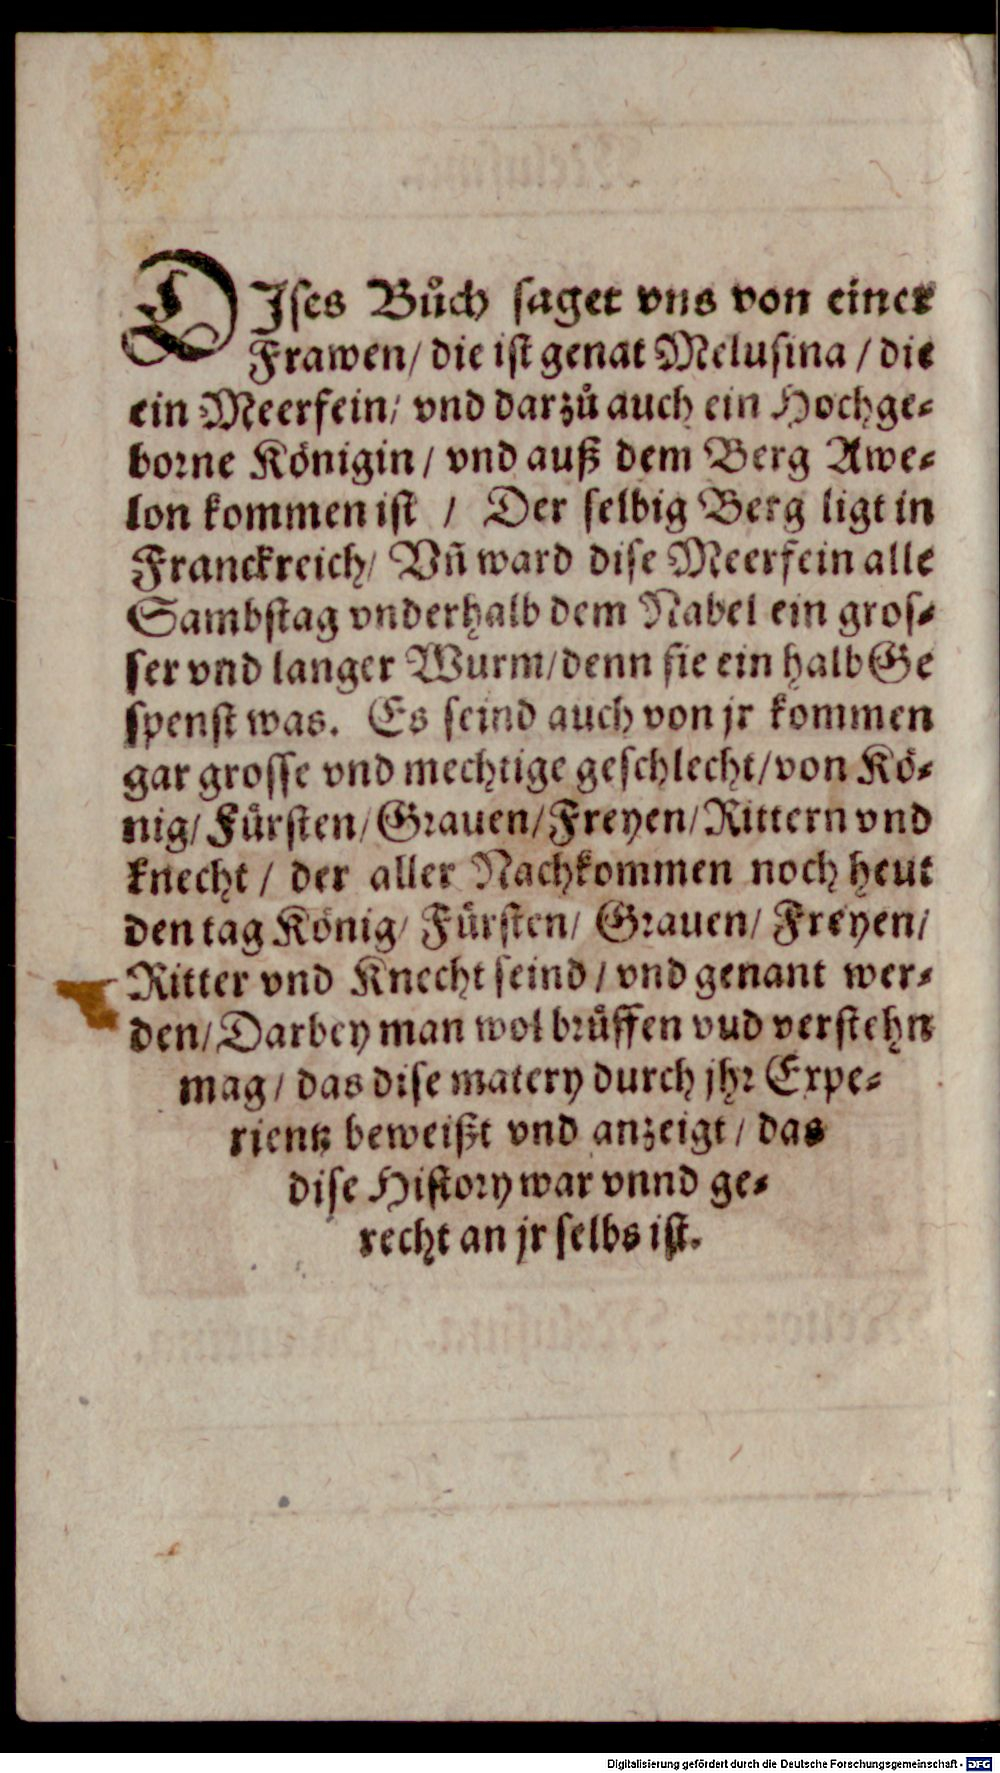 DIses Bůch saget vns von einer
Frawen/ die ist genat Melusina / die
ein Meerfein/ vnd darzů auch ein Hochge-
borne Königin / vnd auß dem Berg Awe-
lon kommen ist / Der selbig Berg ligt in
Franckreich/ Vñ ward dise Meerfein alle
Sambstag vnderhalb dem Nabel ein gros-
ser vnd langer Wurm/denn sie ein halb Ge
spenst was. Es seind auch von jr kommen
gar grosse vnd mechtige geschlecht/von Kö-
nig/ Fürsten/Grauen/Freyen/Rittern vnd
knecht / der aller Nachkommen noch heut
den tag König/ Fürsten/ Grauen/ Freyen/
Ritter vnd Knecht seind / vnd genant wer-
den/Darbey man wol brüffen vud verstehn
mag / das dise matery durch jhr Expe-
rientz beweißt vnd anzeigt / das
dise History war vnnd ge-
recht an jr selbs ist.
Digitalisierung gefördert durch die Deutsche Forschungsgemeinschaft - DFG